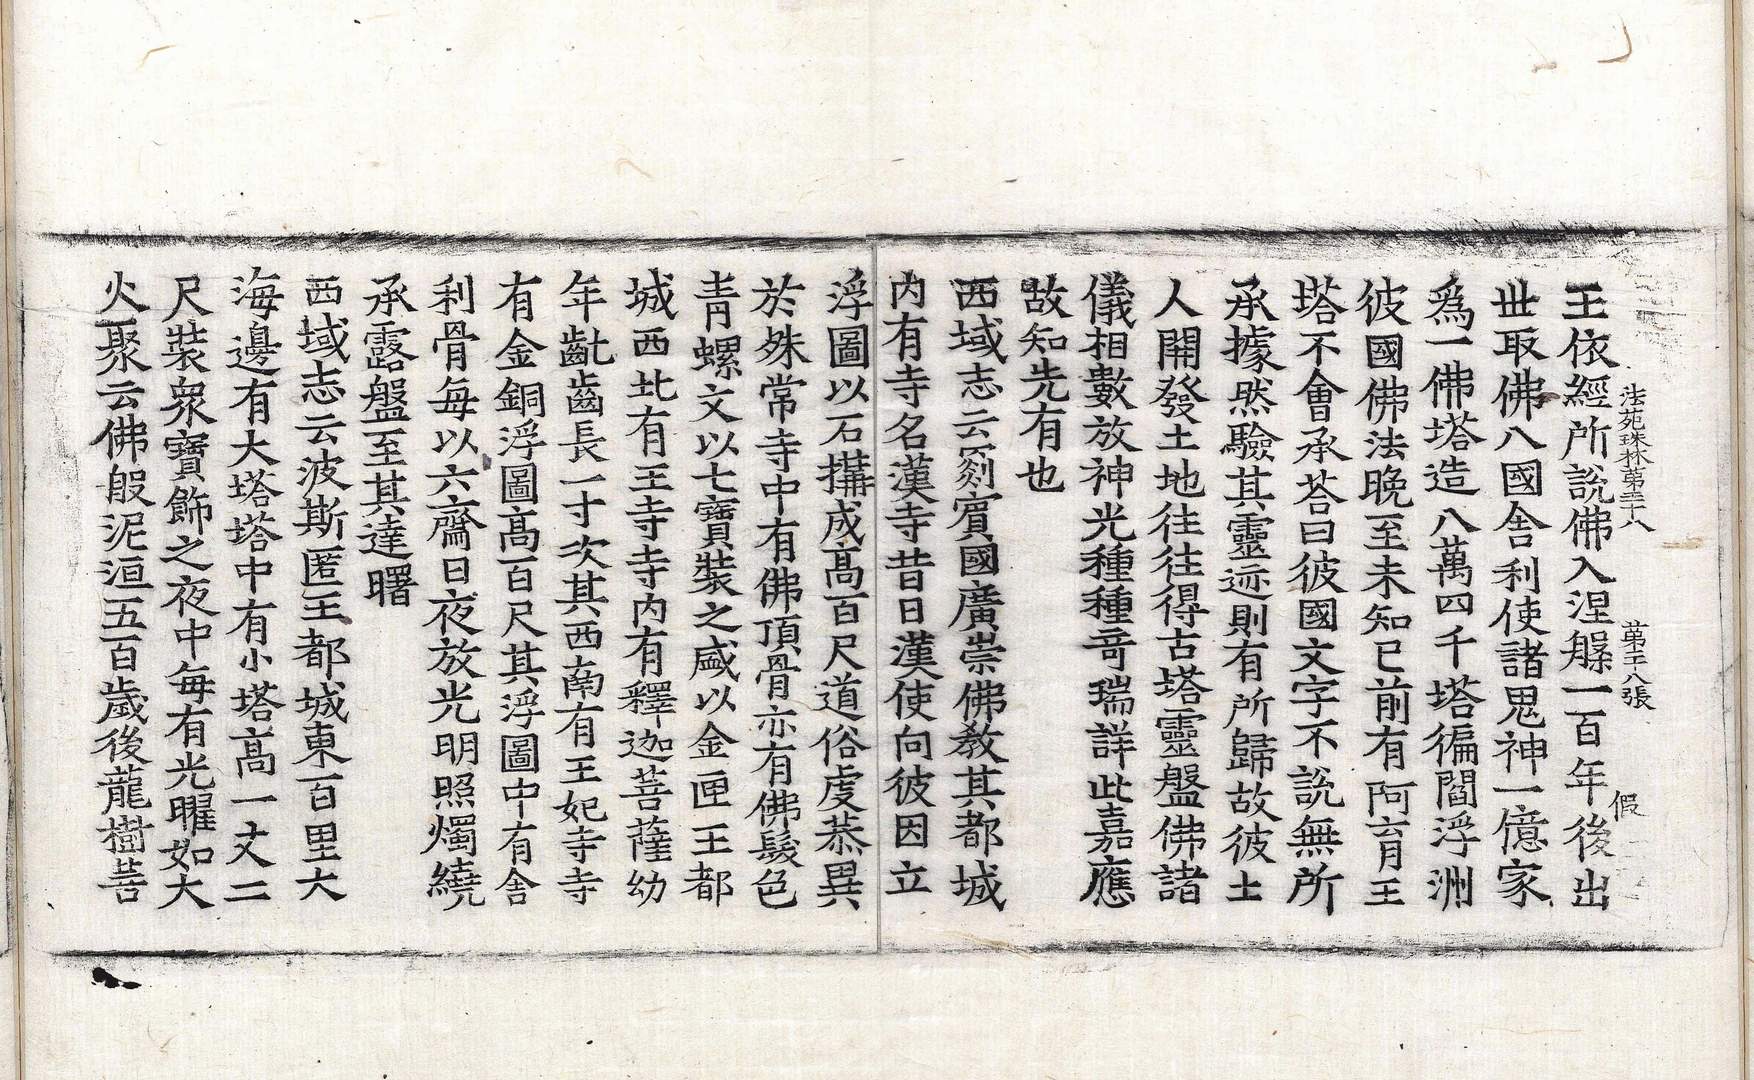 法苑珠林第三十八 第二十八張 假
王依經所說佛入涅槃一百年後出
世取佛八國舍利使諸鬼神一億家
爲一佛塔造八萬四千塔徧閻浮洲
彼國佛法晩至未知已前有阿育王
塔不會承荅曰彼國文字不說無所
承據然驗其靈迹則有所歸故彼土
人開發土地往往得古塔靈盤佛諸
儀相數放神光種種奇瑞詳此嘉應
故知先有也
西域志云罽賓國廣崇佛教其都城
内有寺名漢寺昔日漢使向彼因立
浮圖以石搆成高百尺道俗虔恭異
於殊常寺中有佛頂骨亦有佛髮色
青螺文以七寶裝之盛以金匣王都
城西北有王寺寺内有釋迦菩薩幼
年齔齒長一寸次其西南有王妃寺寺
有金銅浮圖高百尺其浮圖中有舍
利骨每以六齋日夜放光明照燭繞
承露盤至其達曙
西域志云波斯匿王都城東百里大
海邊有大塔塔中有小塔高一丈二
尺裝衆寶飾之夜中每有光曜如大
火聚云佛般泥洹五百歲後龍樹菩